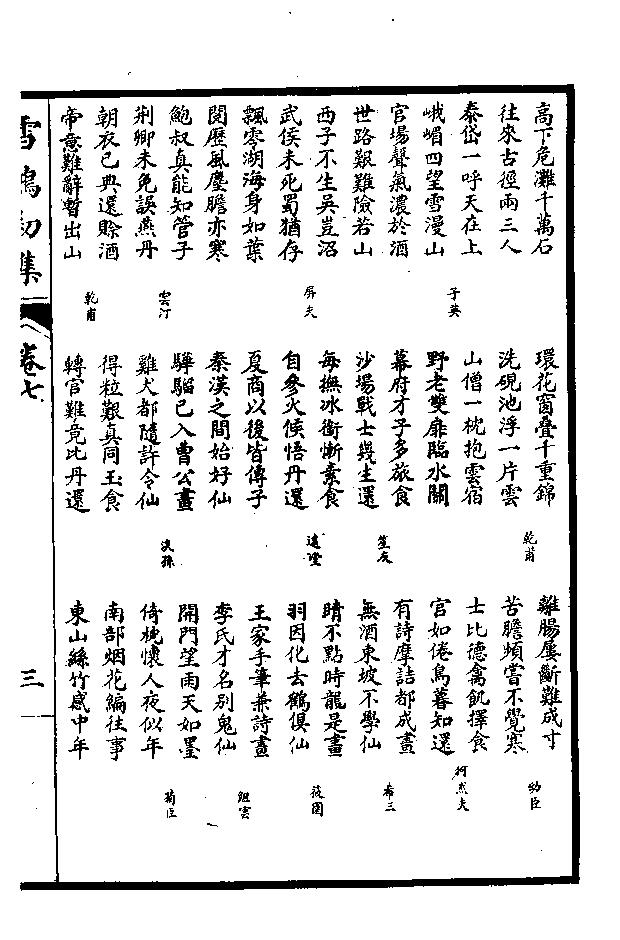 高下危灘千萬石
往來古徑兩三人
泰岱一呼天在上
峨嵋四望雪漫山
子英
官場聲氣濃於酒
世路艱難險若山
西子不生吳豈沼
武侯未死蜀猶存
屏夫
飄零湖海身如葉
閱歷風塵膽亦寒
鮑叔真能知管子
荊卿未免誤燕丹
雲汀
朝衣已典還賒酒
帝意難辭暫出山
乾甫
環花窗疊千重錦
洗硯池浮一片雲
乾甫
山僧一枕抱雲宿
野老雙扉臨水關
幕府才子多旅食
沙場戰士幾生還
笙友
每撫冰銜慚素食
自參火候悟丹還
夏商以後皆傳子
秦漢之間始好仙
驊騮已入曹公畫
雞犬都隨許令仙
得粒艱真同玉食
轉官難竟比丹還
離腸屢斷難成寸
苦膽頻嘗不覺寒
幼臣
士比德禽飢擇食
官如倦鳥暮知還
有詩摩詰都成畫
無酒東坡不學仙
希三
睛不點時龍是畫
羽因化去鶴俱仙
筱園
王家手筆兼詩畫
李氏才名別鬼仙
組雲
開門望雨天如墨
倚枕懷人夜似年
菊臣
南部烟花編往事
東山絲竹感中年
雪鴻初集
卷七
三